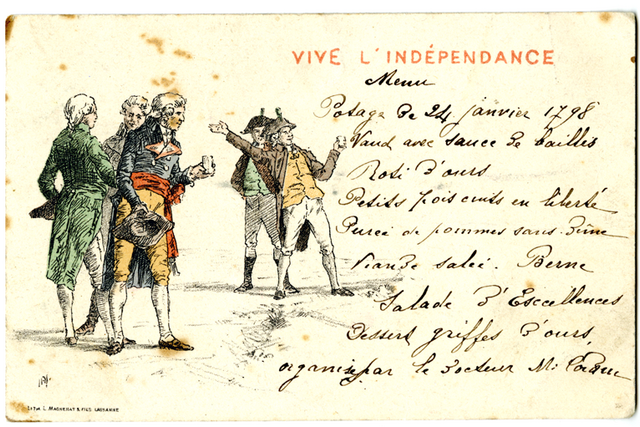 VIVE L'INDÉPENDANCE
Menu
Potage de 24 janvier 1798
Vaud avec sauce de baillis
Roti d'ours
Petits pois cuits en liberté
Purée de pommes sans dîme
Viande salée. Berne
Salade d'Escellences
Dessert griffes d'ours,
organisé par le Docteur M.
LITH. L. MAGNENAT & FILS LAUSANNE